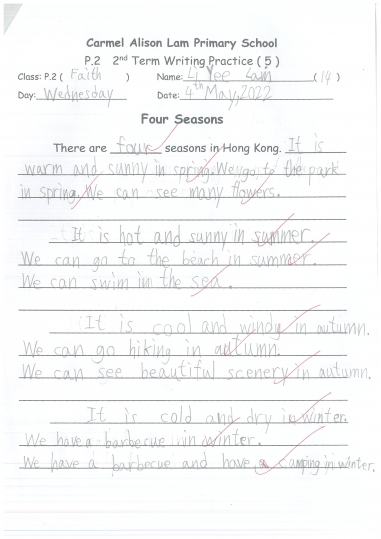 Carmel Alison Lam Primary School
P.2 2nd Term Writing Practice ( 5 )
Class: P.2 ( Faith ) Name: Li Yee Lam ( 14 )
Day: Wednesday Date: 4th May, 2022
Four Seasons
There are four seasons in Hong Kong. It is
warm and sunny in spring. We go to the park
in spring. We can see many flowers.
It is hot and sunny in summer.
We can go to the beach in summer.
We can swim in the sea.
It is cool and windy in autumn.
We can go hiking in autumn.
We can see beautiful scenery in autumn.
It is cold and dry in winter.
We have a barbecue in winter.
We have a barbecue and have a camping in winter.